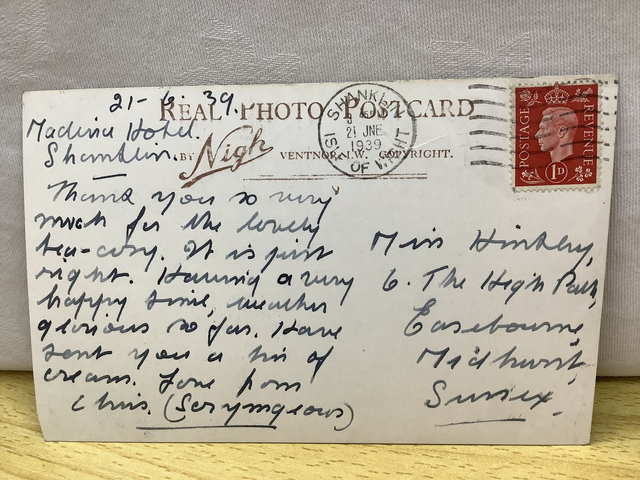 21-6.39.
REAL PHOTO POSTCARD
Madeira Hotel.
Shanklin.
BY Nigh VENTNOR, I.W. COPYRIGHT.
SHANKLIN
21 JNE
1939
ISLE OF WIGHT
POSTAGE REVENUE
1D
Thank you so very
much for the lovely
tea-cosy. It is just
right. Having a very
happy time, weather
glorious so far. Have
sent you a tin of
cream. Love from
Chris. (Scrymgeour)
Miss Hinkley,
6. The High Path,
Easebourne,
Midhurst,
Sussex.